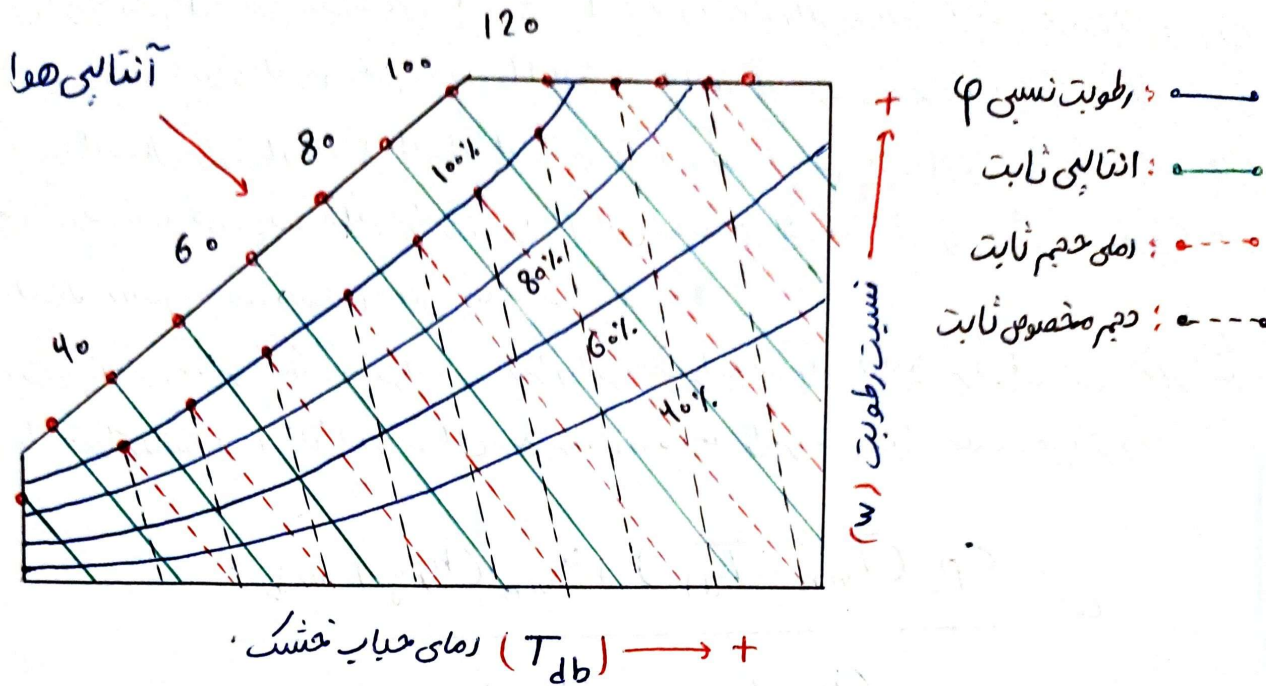 120
100
آنتالپی هوا
80
60
40
100%
80%
60%
40%
+
نسبت رطوبت (W)
دمای حباب خشک (T_db) → +
رطوبت نسبی φ :
انتالپی ثابت :
دمای حجم ثابت :
حجم مخصوص ثابت :